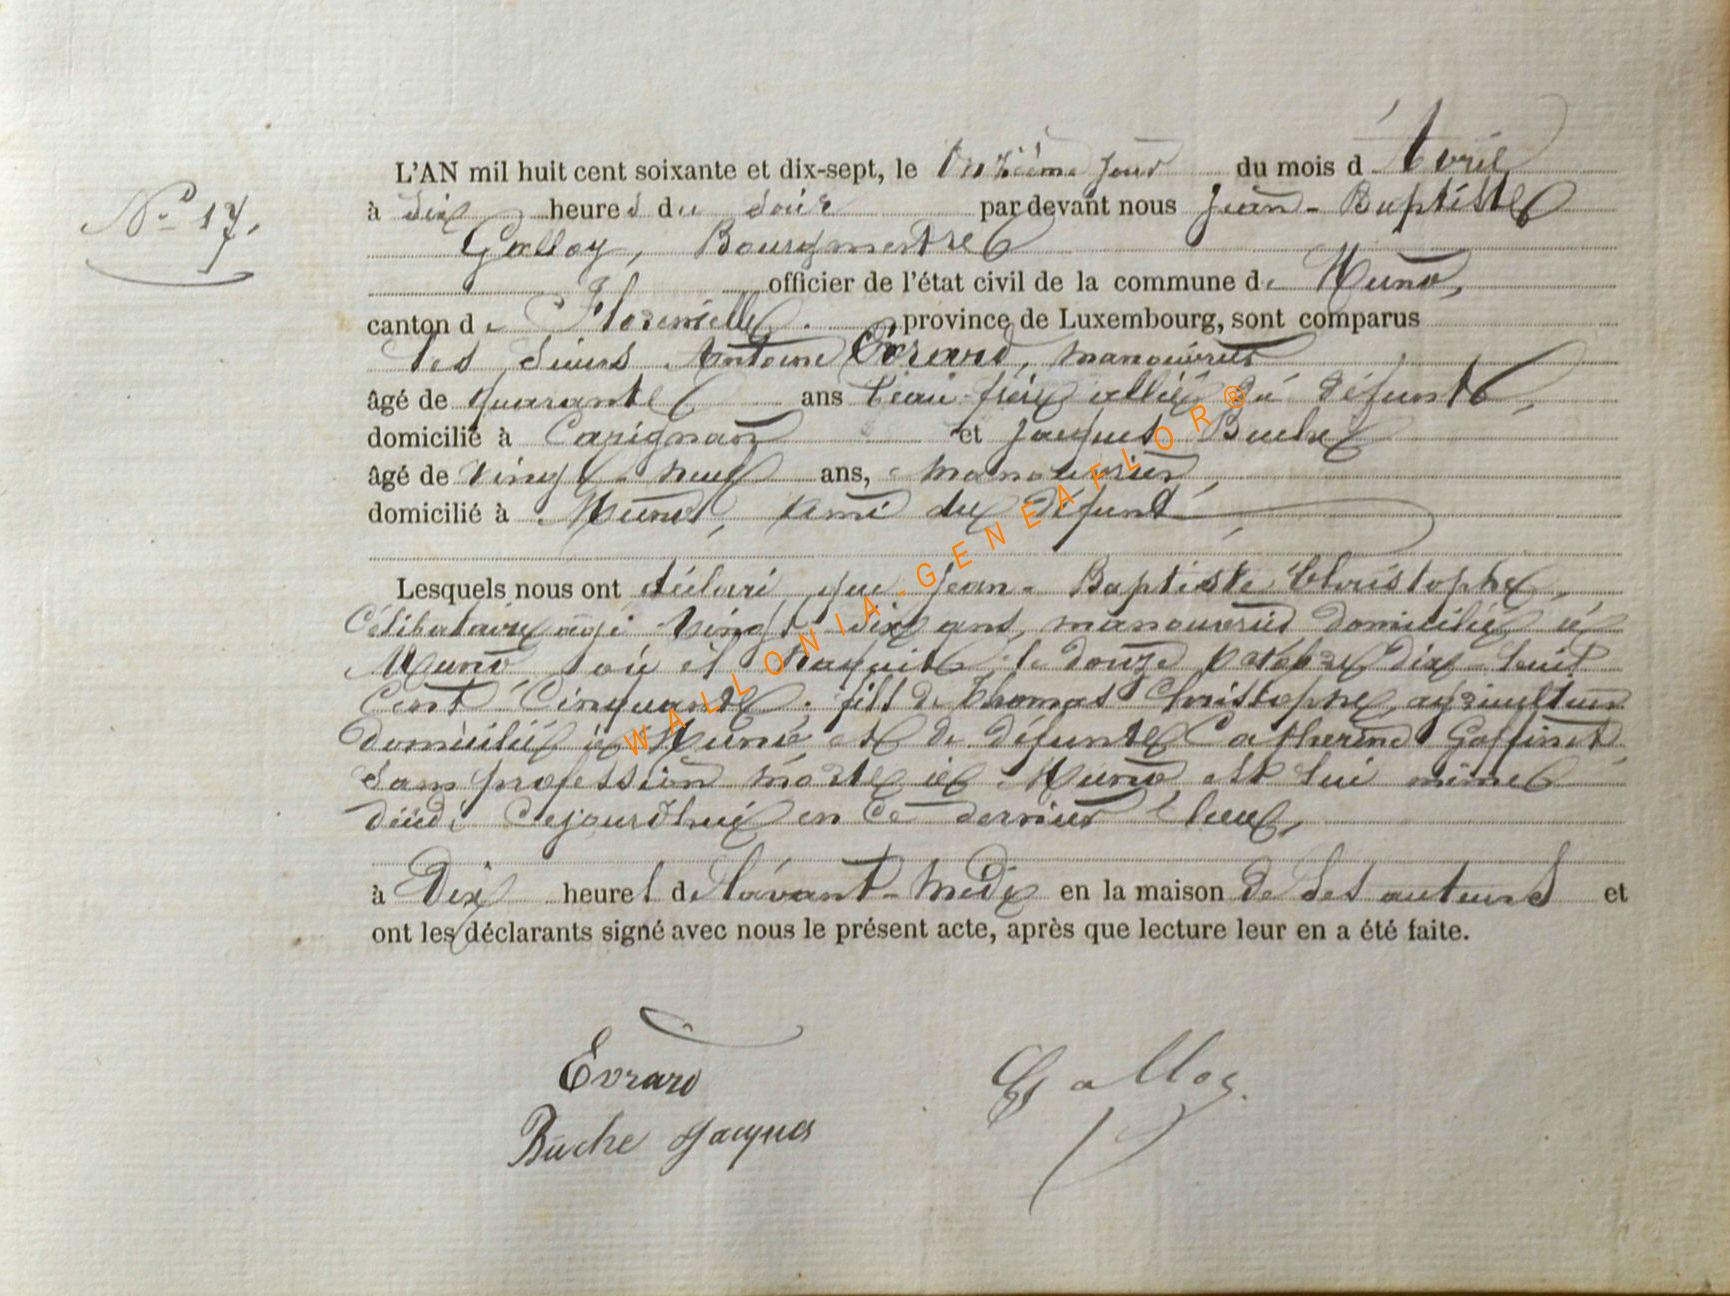 N° 17.
L'AN mil huit cent soixante et dix-sept, le Onzième jour du mois d'Avril
à six heures du soir par devant nous Jean-Baptiste
Galloy, Bourgmestre
officier de l'état civil de la commune de Muno,
canton de Florenville. province de Luxembourg, sont comparus
les sieurs Antoine Evrard, manouvrier
âgé de quarante ans beau-frère allié du défunt,
domicilié à Carignan et Jacques Buche
âgé de vingt-neuf ans, manouvrier,
domicilié à Muno, ami du défunt
Lesquels nous ont déclaré que Jean-Baptiste Christophe,
Célibataire âgé vingt-six ans, manouvrier domicilié à
Muno où il naquit le douze octobre dix-huit
cent cinquante. fils de Thomas Christophe, agriculteur
domicilié à Muno et de défunte Catherine Goffinet
sans profession morte à Muno, est lui même
décédé cejourd'hui en ce dernier lieu,
à Dix heures de l'avant-midi en la maison de ses auteurs et
ont les déclarants signé avec nous le présent acte, après que lecture leur en a été faite.
Evrard
Galloy.
Buche Jacques
WALLONIA-GENEAFLOR®